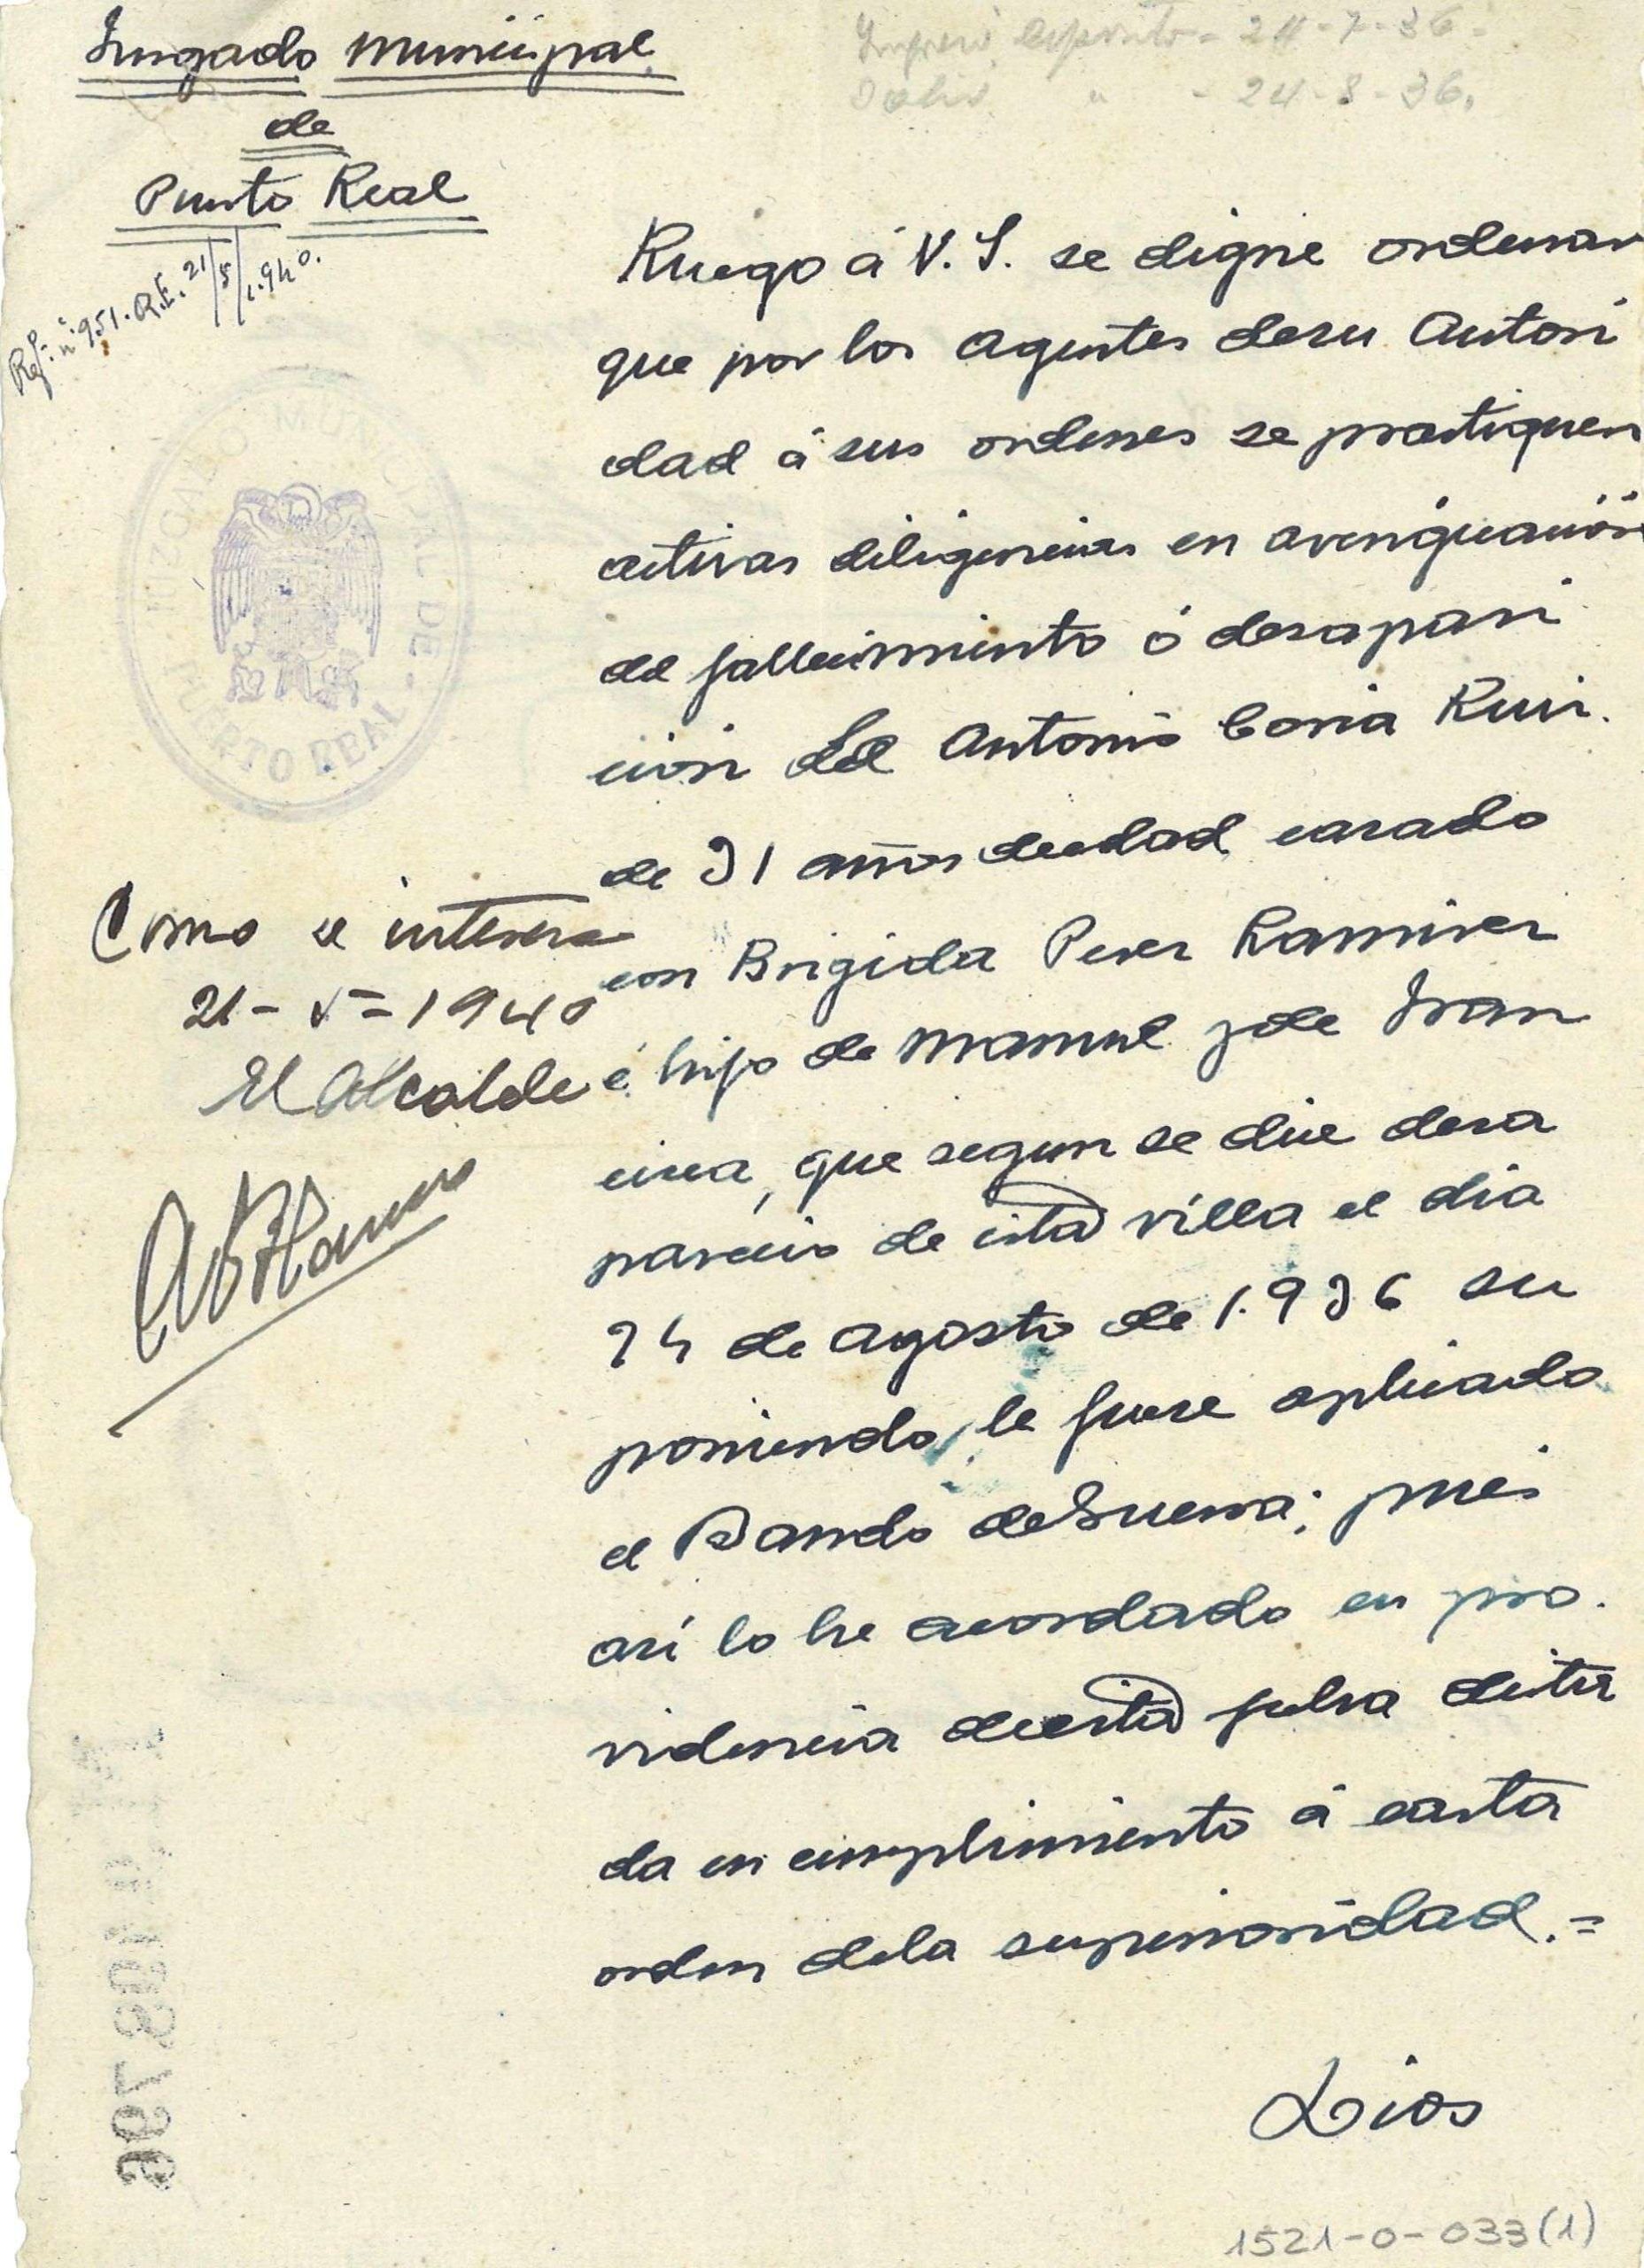 Juzgado Municipal
de
Puerto Real
Ref. nº 951. R.E. 21/5/1.940.
Ingresó Depósito - 24-7-36.
Salió " - 24-8-36.
JUZGADO MUNICIPAL DE
PUERTO REAL
Ruego á V.S. se digne ordenar
que por los agentes de su Autori
dad á sus ordenes se practiquen
activas diligencias en averiguación
del fallecimiento ó desapari
ción del Antonio Coria Ruiz.
de 31 años de edad, casado
con Brigida Perez Ramirez
é hijo de Manuel y de Fran
cisca, que segun se dice desa
pareció de esta villa el dia
24 de agosto de 1.936 su
poniendo, le fuese aplicado
el Bando de Guerra; pues
así lo he acordado en pro-
videncia de esta fecha dicta
da en cumplimiento á carta
orden de la superioridad.=
Dios
Como se interesa
21-V-1940
El Alcalde
1521-0-033(1)